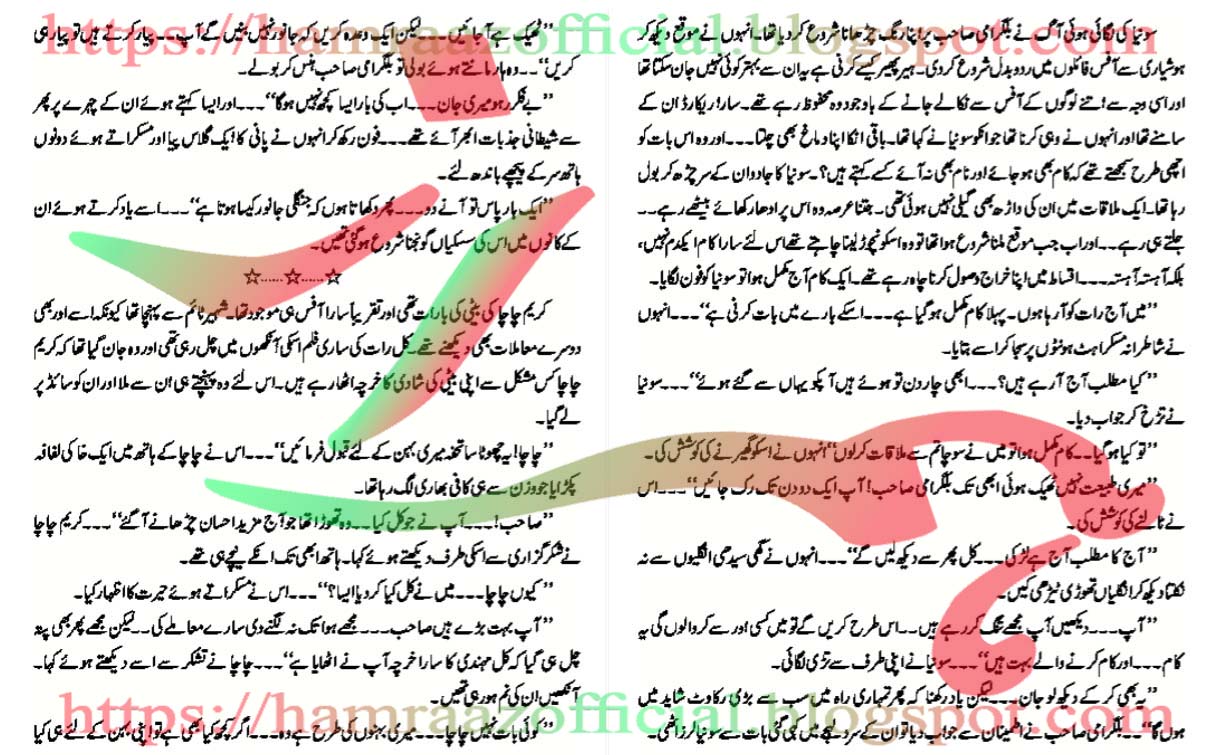 https://hamraazofficial.blogspot.com
سونیا کی لگائی ہوئی آگ نے بلگرامی صاحب پر اپنا رنگ چڑھانا شروع کر دیا تھا۔ انہوں نے موقع دیکھ کر
ہوشیاری سے آفس فائلوں میں ردوبدل شروع کر دی۔ ہیر پھیر کیسے کرنی ہے یہ ان سے بہتر کوئی نہیں جان سکتا تھا
اور اسی وجہ سے اتنے لوگوں کے آفس سے نکالے جانے کے باوجود وہ محفوظ رہے تھے۔ سارا ریکارڈ ان کے
سامنے تھا اور انہوں نے وہی کرنا تھا جو انکو سونیا نے کہا تھا۔ باقی انکا اپنا دماغ بھی چلتا۔۔۔ اور وہ اس بات کو
اچھی طرح سمجھتے تھے کہ کام بھی ہو جائے اور نام بھی نہ آئے کسے کہتے ہیں؟۔ سونیا کا جادو ان کے سر چڑھ کر بول
رہا تھا۔ ایک ملاقات میں ان کی داڑھ بھی گیلی نہیں ہوئی تھی۔ جتنا عرصہ وہ اس پر ادھار کھائے بیٹھے رہے۔۔
جلتے ہی رہے۔۔ اور اب جب موقع ملنا شروع ہوا تھا تو وہ اسکو نچوڑ لینا چاہتے تھے اس لئے سارا کام ایکدم نہیں،
بلکہ آہستہ آہستہ۔۔۔ اقساط میں اپنا خراج وصول کرنا چاہ رہے تھے۔ ایک کام آج مکمل ہوا تو سونیا کو فون لگایا۔
’’میں آج رات کو آ رہا ہوں۔ پہلا کام مکمل ہو گیا ہے۔۔۔ اسکے بارے میں بات کرنی ہے‘‘۔۔۔ انہوں
نے شاطرانہ مسکراہٹ ہونٹوں پر سجا کر اسے بتایا۔
’’کیا مطلب آج آ رہے ہیں؟۔۔۔ ابھی چار دن تو ہوئے ہیں آپکو یہاں سے گئے ہوئے‘‘۔۔۔ سونیا
نے تڑخ کر جواب دیا۔
’’تو کیا ہو گیا۔۔ کام مکمل ہوا تو میں نے سوچا تم سے ملاقات کر لوں‘‘ انہوں نے اسکو گھیرنے کی کوشش کی۔
’’میری طبیعت نہیں ٹھیک ہوئی ابھی تک بلگرامی صاحب! آپ ایک دو دن تک رک جائیں‘‘۔۔۔ اس
نے ٹالنے کی کوشش کی۔
’’آج کا مطلب آج ہے لڑکی۔۔۔ کل پھر سے دیکھ لیں گے‘‘۔۔۔ انہوں نے گھی سیدھی انگلیوں سے نہ
نکلتا دیکھ کر انگلیاں تھوڑی ٹیڑھی کیں۔
’’آپ۔۔۔ دیکھیں آپ مجھے تنگ کر رہے ہیں۔۔ اس طرح کریں گے تو میں کسی اور سے کروا لوں گی یہ
کام۔۔۔ اور کام کرنے والے بہت ہیں‘‘۔۔۔ سونیا نے اپنی طرف سے تڑی لگائی۔
’’یہ بھی کر کے دیکھ لو جان۔۔۔ لیکن یاد رکھنا کہ پھر تمہاری راہ میں سب سے بڑی رکاوٹ شاید میں
ہوں گا‘‘۔ بلگرامی صاحب نے اطمینان سے جواب دیا تو ان کے سرد لہجے میں کہی گئی بات سے سونیا لرز اٹھی۔
’’ٹھیک ہے آ جائیں۔۔۔ لیکن ایک وعدہ کریں کہ جانور نہیں بنیں گے آپ۔۔۔ پیار کرتے ہیں تو پیار ہی
کریں‘‘۔۔ وہ ہار مانتے ہوئے بولی تو بلگرامی صاحب ہنس کر بولے۔
’’بے فکر رہو میری جان۔۔۔ اب کی بار ایسا کچھ نہیں ہوگا‘‘۔۔۔ اور ایسا کہتے ہوئے ان کے چہرے پر پھر
سے شیطانی جذبات ابھر آئے تھے۔۔۔ فون رکھ کر انہوں نے پانی کا ایک گلاس پیا اور مسکراتے ہوئے دونوں
ہاتھ سر کے پیچھے باندھ لئے۔
’’ایک بار پاس تو آنے دو۔۔۔ پھر دکھاتا ہوں کہ جنگلی جانور کیسا ہوتا ہے‘‘۔۔۔ اسے یاد کرتے ہوئے ان
کے کانوں میں اس کی سسکیاں گونجنا شروع ہو گئی تھیں۔
☆......☆......☆
کریم چاچا کی بیٹی کی بارات تھی اور تقریباً سارا آفس ہی موجود تھا۔ شہیر ٹائم سے پہنچا تھا کیونکہ اسے اور بھی
دوسرے معاملات بھی دیکھنے تھے۔ کل رات کی ساری فلم اسکی آنکھوں میں چل رہی تھی اور وہ جان گیا تھا کہ کریم
چاچا کس مشکل سے اپنی بیٹی کی شادی کا خرچہ اٹھا رہے ہیں۔ اس لئے وہ پہنچتے ہی ان سے ملا اور ان کو سائڈ پر
لے گیا۔
’’چاچا! یہ چھوٹا سا تحفہ میری بہن کے لئے قبول فرمائیں‘‘۔۔۔ اس نے چاچا کے ہاتھ میں ایک خاکی لفافہ
پکڑایا جو وزن سے ہی کافی بھاری لگ رہا تھا۔
’’صاحب!۔۔۔ آپ نے جو کل کیا۔۔ وہ تھوڑا تھا جو آج مزید احسان چڑھانے آ گئے‘‘۔۔۔ کریم چاچا
نے شکر گزاری سے اسکی طرف دیکھتے ہوئے کہا۔ ہاتھ ابھی تک انکے نیچے ہی تھے۔
’’کیوں چاچا۔۔۔ میں نے کل کیا کر دیا ایسا؟‘‘۔۔۔ اس نے مسکراتے ہوئے حیرت کا اظہار کیا۔
’’آپ بہت بڑے ہیں صاحب۔۔۔ مجھے ہوا تک نہ لگنے دی سارے معاملے کی۔۔ لیکن مجھے پھر بھی پتہ
چل ہی گیا کہ کل مہندی کا سارا خرچہ آپ نے اٹھایا ہے‘‘۔۔۔ چاچا نے تشکر سے اسے دیکھتے ہوئے کہا۔
آنکھیں ان کی نم ہو رہی تھیں۔
’’کوئی بات نہیں چاچا۔۔۔ میری بہنوں کی طرح ہے وہ۔۔۔ اگر کچھ کیا بھی ہے تو اپنی بہن کے لئے ہی کیا
https://hamraazofficial.blogspot.com